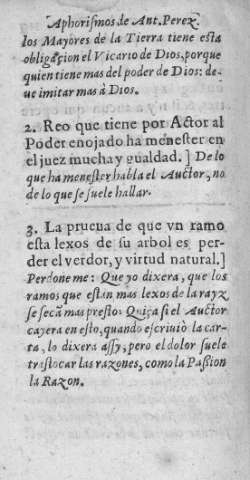 Aphorismos de Ant. Perez.
los Mayores de la Tierra tiene esta
obligacion el Vicario de Dios, porque
quien tiene mas del poder de Dios: de-
ue imitar mas à Dios.
2. Reo que tiene por Actor al
Poder enojado ha menester en
el juez mucha ygualdad. ] De lo
que ha menester habla el Auctor, no
de lo que se suele hallar.
3. La prueua de que vn ramo
esta lexos de su arbol es per-
der el verdor, y virtud natural. ]
Perdone me: Que yo dixera, que los
ramos que estan mas lexos de la rayz
se secã mas presto: Quiça si el Auctor
cayera en esto, quando escriuiò la car-
ta, lo dixera assy, pero el dolor suele
trastocar las razones, como la Passion
la Razon.